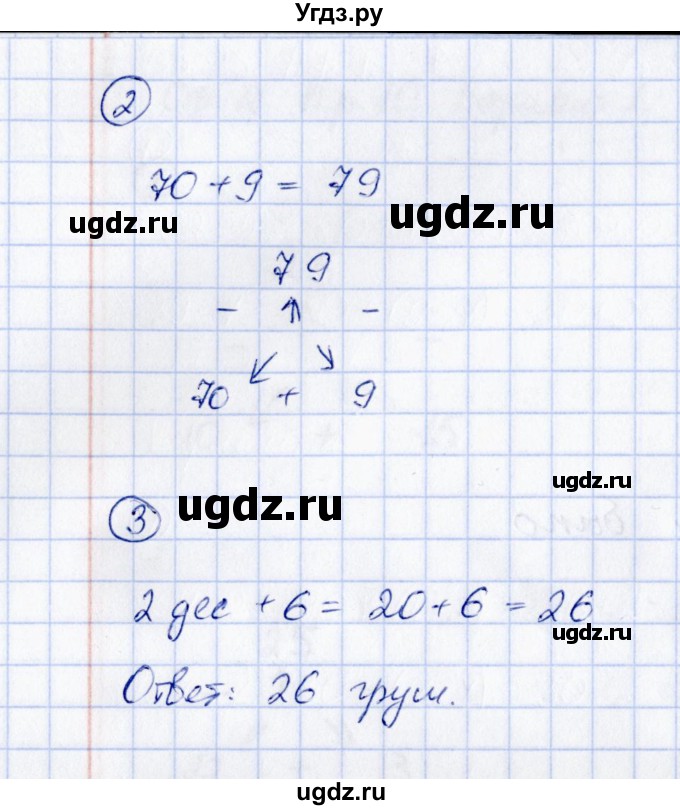 Угдз.ру
2
70 + 9 = 79
ugdz.ru
ugdz.ru
79
- ↑ -
↙ ↘
70 + 9
ugdz.ru
ugdz.ru
3
2 дес + 6 = 20 + 6 = 26
ugdz.ru
Ответ: 26 груш.
ugdz.ru